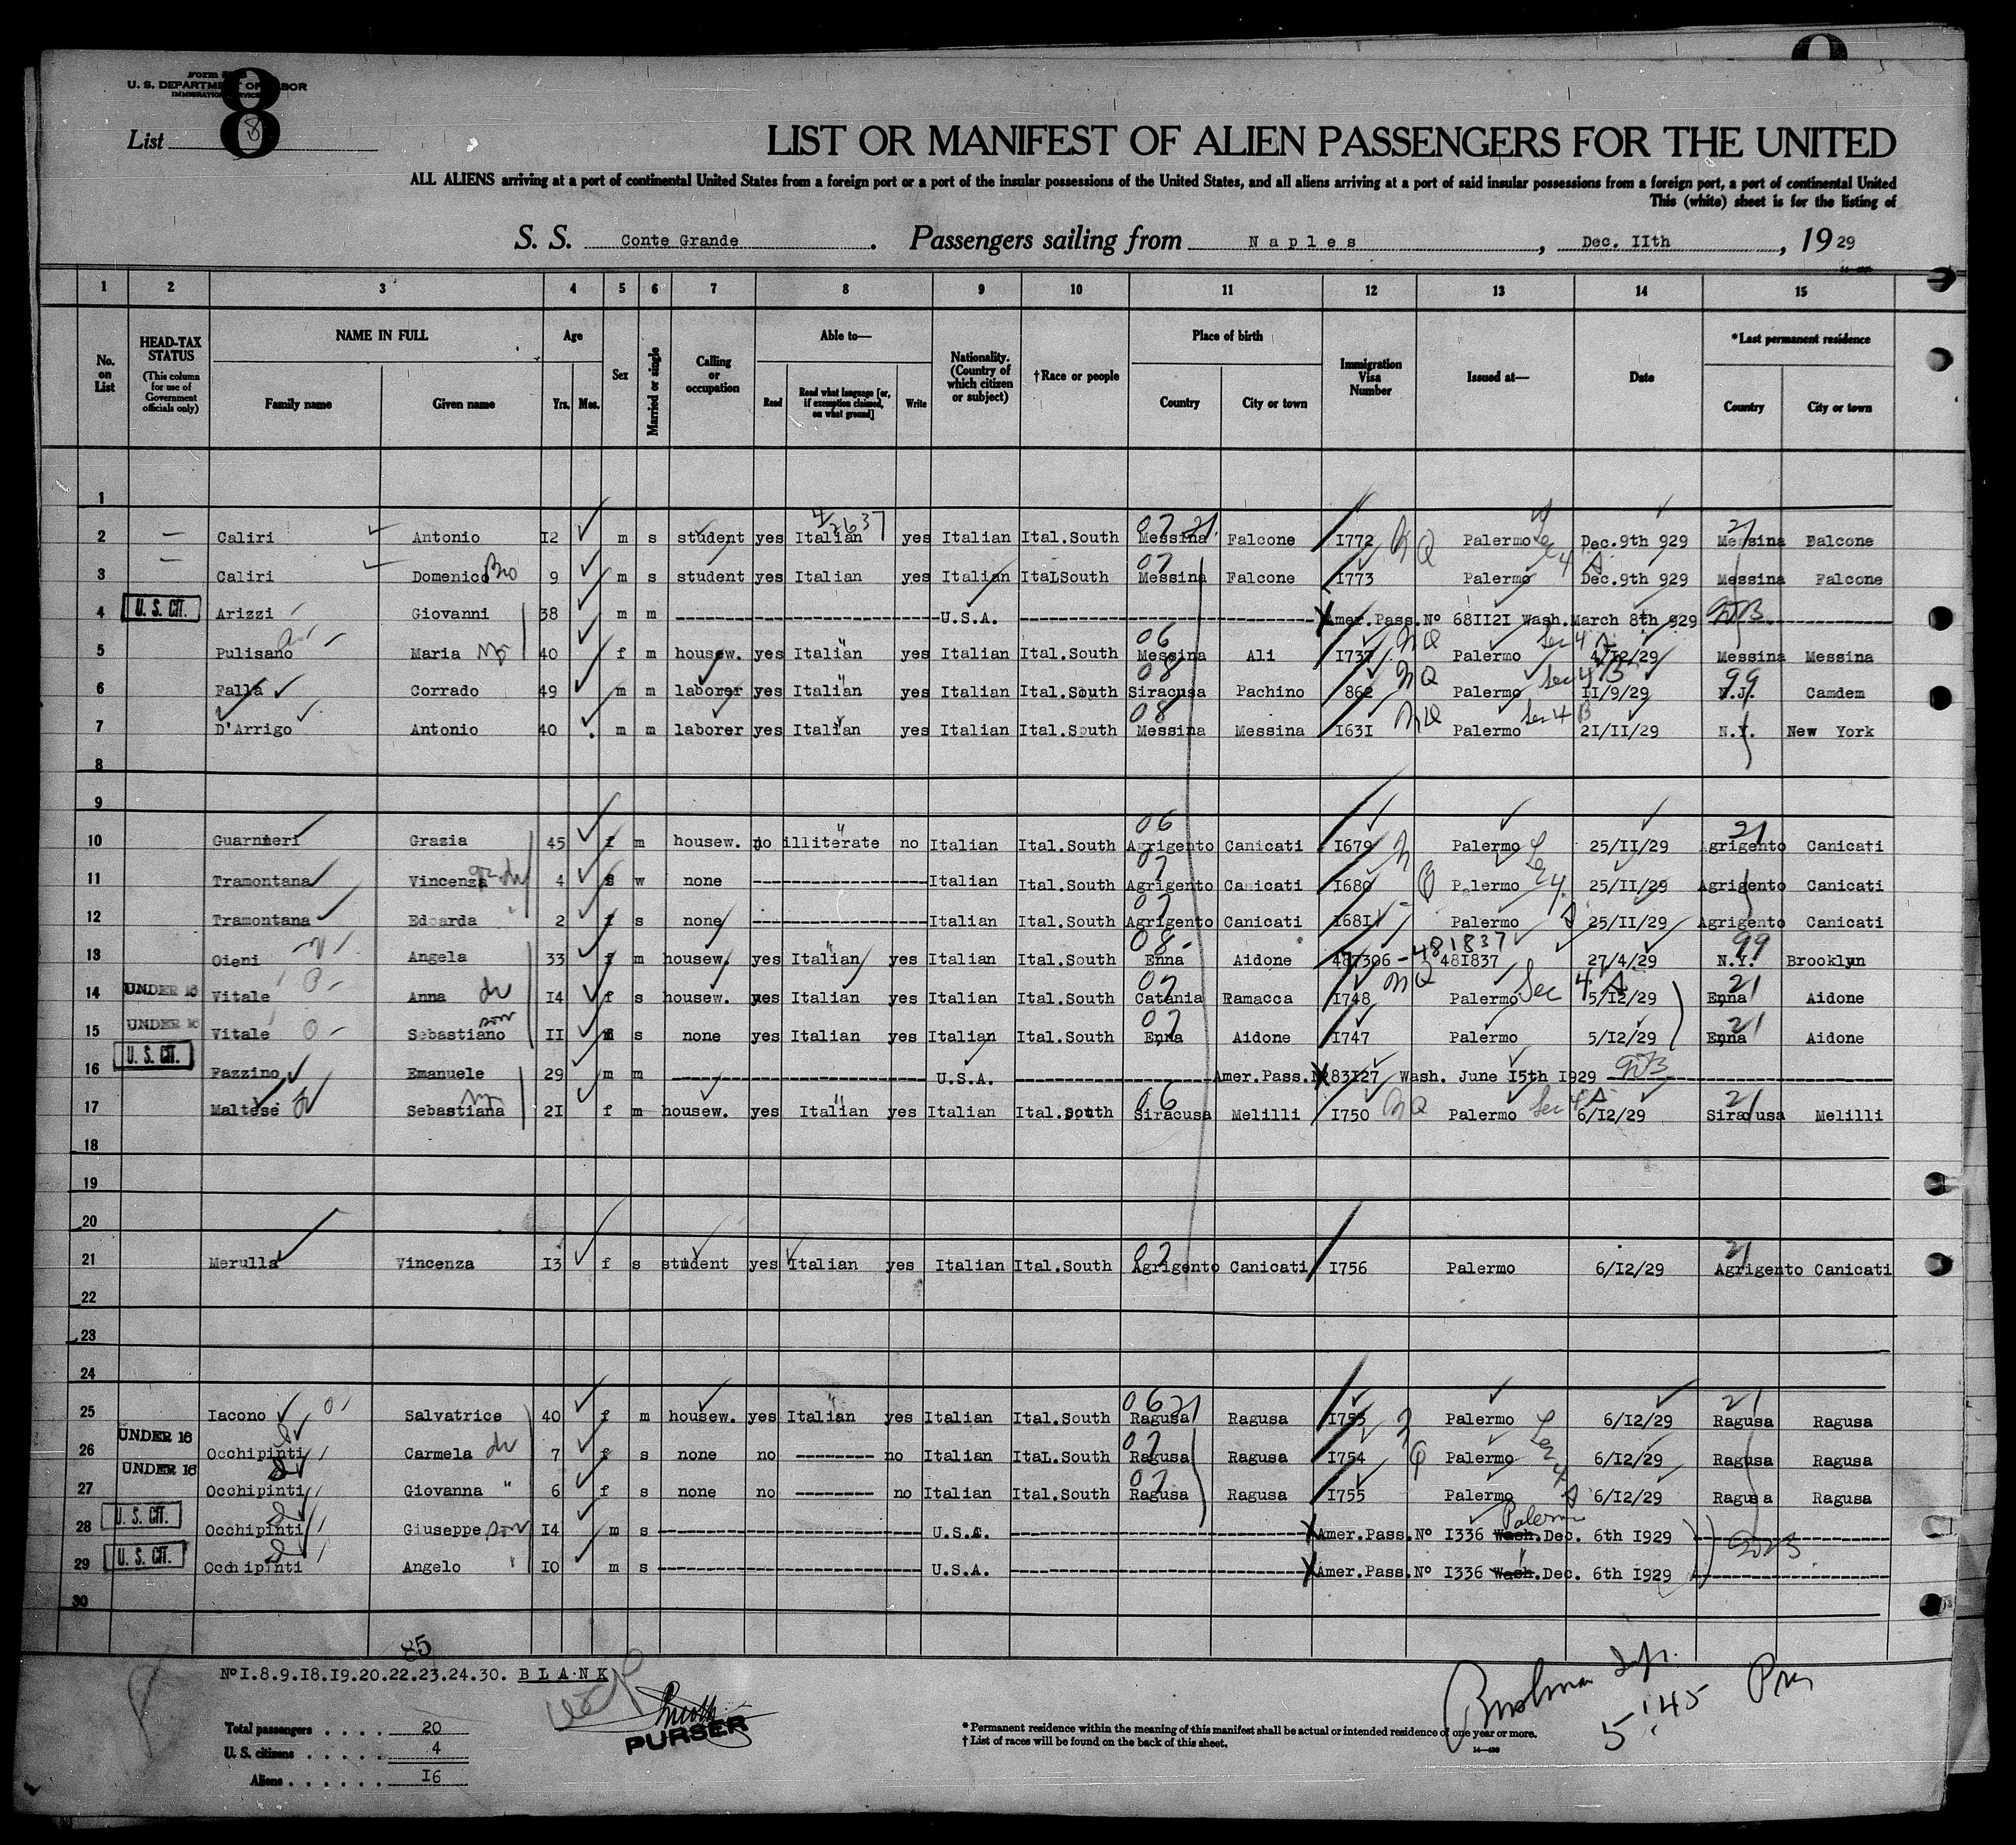 8
U. S. DEPARTMENT OF LABOR
IMMIGRATION SERVICE
List 8
LIST OR MANIFEST OF ALIEN PASSENGERS FOR THE UNITED
ALL ALIENS arriving at a port of continental United States from a foreign port or a port of the insular possessions of the United States, and all aliens arriving at a port of said insular possessions from a foreign port, a port of continental United
This (white) sheet is for the listing of
S. S. Conte Grande. Passengers sailing from Naples, Dec. IIth, 1929
1 2 3 4 5 6 7 8 9 10 11 12 13 14 15
No. on List HEAD-TAX STATUS (This column for use of Government officials only) NAME IN FULL Family name Given name Age Yrs. Mos. Sex Married or single Calling or occupation Able to— Read Read what language [or, if exemption claimed, on what ground] Write Nationality. (Country of which citizen or subject) †Race or people Place of birth Country City or town Immigration Visa Number Issued at— Date *Last permanent residence Country City or town
1
4/2637
2 — Caliri Antonio I2 m s student yes Italian yes Italian Ital.South 07 21 Messina Falcone I772 NQ Palermo Sec 4 A Dec.9th 929 21 Messina Falcone
3 — Caliri Domenico Bro 9 m s student yes Italian yes Italian ItaLSouth 07 Messina Falcone I773 Palermo Dec.9th 929 Messina Falcone
4 U. S. CIT. Arizzi Giovanni 38 m m U.S.A. Amer.Pass.No 68II2I Wash.March 8th 929
5 Pulisano Maria 40 f m housew. yes Italian yes Italian Ital.South 06 Messina Ali I737 NQ Palermo Sec 4 A 4/I2/29 Messina Messina
6 Falla Corrado 49 m m laborer yes Italian yes Italian Ital.South 08 Siracusa Pachino 862 NQ Palermo Sec 4 B II/9/29 99 N.J. Camdem
7 D'Arrigo Antonio 40 m m laborer yes Italian yes Italian Ital.South 08 Messina Messina I63I NQ Palermo Sec 4 B 2I/II/29 N.Y. New York
8
9
10 Guarnieri Grazia 45 f m housew. no illiterate no Italian Ital.South 06 Agrigento Canicati I679 N Palermo Sec 4 A 25/II/29 21 Agrigento Canicati
11 Tramontana Vincenza 4 s w none Italian Ital.South 07 Agrigento Canicati I680 Q Palermo 25/II/29 Agrigento Canicati
12 Tramontana Edoarda " 2 f s none Italian Ital.South 07 Agrigento Canicati I68I Palermo 25/II/29 Agrigento Canicati
13 Oieni Angela 33 f m housew. yes Italian yes Italian Ital.South 08 Enna Aidone 487306 - 481837 48I837 27/4/29 99 N.Y. Brooklyn
14 UNDER 16 Vitale Anna I4 f s housew. yes Italian yes Italian Ital.South 07 Catania Ramacca I748 NQ Palermo Sec 4 A 5/I2/29 21 Enna Aidone
15 UNDER 16 Vitale Sebastiano son II m s none yes Italian yes Italian Ital.South 07 Enna Aidone I747 Palermo 5/I2/29 21 Enna Aidone
16 U. S. CIT. Fazzino Emanuele 29 m m U.S.A. Amer.Pass.No 83I27 Wash. June I5th I929
17 Maltese Sebastiana 2I f m housew. yes Italian yes Italian Ital.South 06 Siracusa Melilli I750 NQ Palermo Sec 4 A 6/I2/29 21 Siracusa Melilli
18
19
20
21 Merulla Vincenza I3 f s student yes Italian yes Italian Ital.South 07 Agrigento Canicati I756 Palermo 6/I2/29 21 Agrigento Canicati
22
23
24
25 Iacono Salvatrice 40 f m housew. yes Italian yes Italian Ital.South 06 21 Ragusa Ragusa I753 N Palermo Sec 4 A 6/I2/29 21 Ragusa Ragusa
26 UNDER 16 Occhipinti Carmela 7 f s none no no Italian ItaL.South 07 Ragusa Ragusa I754 Q Palermo 6/I2/29 Ragusa Ragusa
27 UNDER 16 Occhipinti Giovanna " 6 f s none no no Italian Ital.South 07 Ragusa Ragusa I755 Palermo 6/I2/29 Ragusa Ragusa
28 U. S. CIT. Occhipinti Giuseppe son I4 m s U.S.A. Amer.Pass.No I336 Wash. Palermo Dec. 6th I929
29 U. S. CIT. Occhipinti Angelo " IO m s U.S.A. Amer.Pass.No I336 Wash. " Dec. 6th I929
30
85
No I.8.9.I8.I9.20.22.23.24.30. BLANK
PURSER
Total passengers . . . . 20
U. S. citizens . . . . . 4
Aliens . . . . . . I6
* Permanent residence within the meaning of this manifest shall be actual or intended residence of one year or more.
† List of races will be found on the back of this sheet.
5:45 Pm